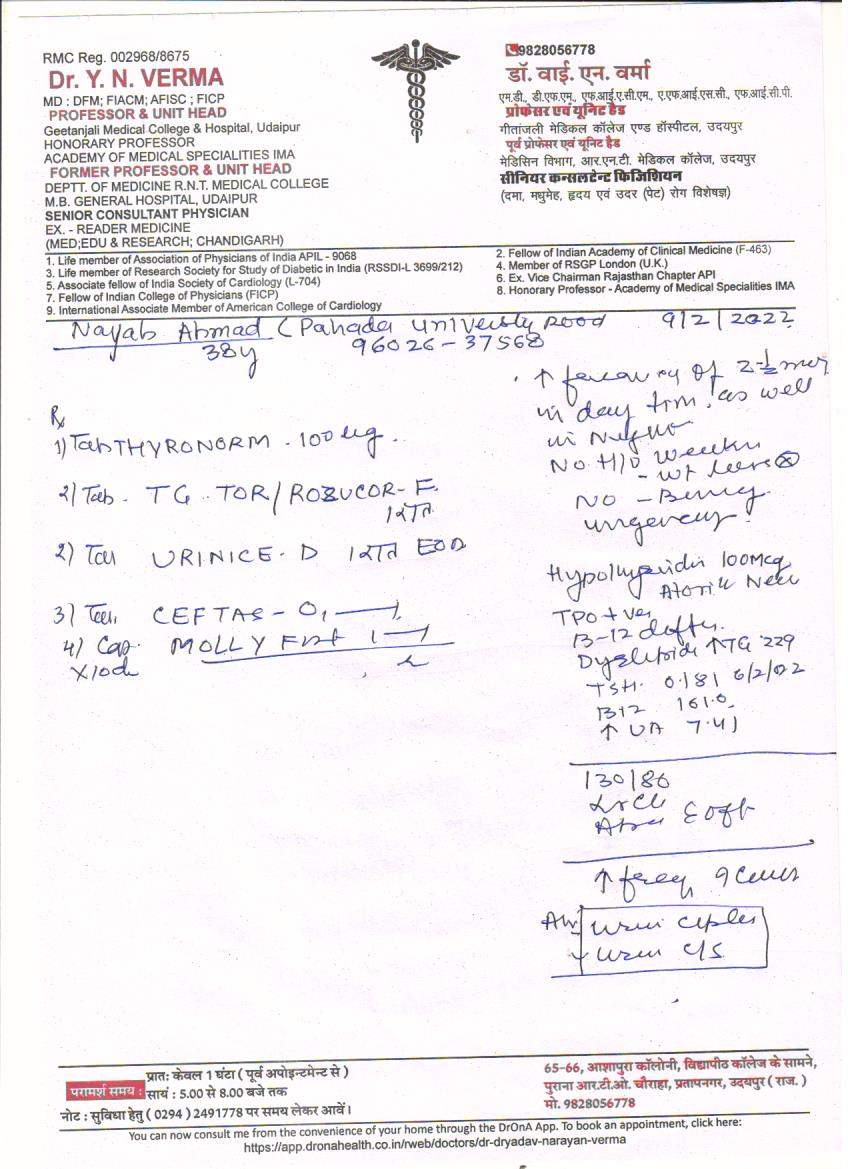 RMC Reg. 002968/8675
Dr. Y. N. VERMA
MD : DFM; FIACM; AFISC ; FICP
PROFESSOR & UNIT HEAD
Geetanjali Medical College & Hospital, Udaipur
HONORARY PROFESSOR
ACADEMY OF MEDICAL SPECIALITIES IMA
FORMER PROFESSOR & UNIT HEAD
DEPTT. OF MEDICINE R.N.T. MEDICAL COLLEGE
M.B. GENERAL HOSPITAL, UDAIPUR
SENIOR CONSULTANT PHYSICIAN
EX. - READER MEDICINE
(MED;EDU & RESEARCH; CHANDIGARH)
9828056778
डॉ. वाई. एन. वर्मा
एम.डी., डी.एफ.एम., एफ.आई.ए.सी.एम., ए.एफ.आई.एस.सी., एफ.आई.सी.पी.
प्रोफेसर एवं यूनिट हैड
गीतांजली मेडिकल कॉलेज एण्ड हॉस्पीटल, उदयपुर
पूर्व प्रोफेसर एवं यूनिट हैड
मेडिसिन विभाग, आर.एन.टी. मेडिकल कॉलेज, उदयपुर
सीनियर कन्सलटेन्ट फिजिशियन
(दमा, मधुमेह, हृदय एवं उदर (पेट) रोग विशेषज्ञ)
1. Life member of Association of Physicians of India APIL - 9068
2. Fellow of Indian Academy of Clinical Medicine (F-463)
3. Life member of Research Society for Study of Diabetic in India (RSSDI-L 3699/212)
4. Member of RSGP London (U.K.)
5. Associate fellow of India Society of Cardiology (L-704)
6. Ex. Vice Chairman Rajasthan Chapter API
7. Fellow of Indian College of Physicians (FICP)
8. Honorary Professor - Academy of Medical Specialities IMA
9. International Associate Member of American College of Cardiology
Nayab Ahmad (Pahada University Road 9/2/2022
38y 96026-37568
Rx
1) Tab THYRONORM. 100 ug.
2) Tab. TG. TOR/ROZUCOR-F.
1 रात
2) Tab URINICE-D 1 रात EOD
3) Tab. CEFTAS-O, 1
4) Cap. MOLLY 1
X10d
↑ of 2-½
in day time as well
in
No H/O
- wt loss
NO -
urgency
100Mcg
TPO + ve
B-12
↑TG 229
TSH. 0.181 6/2/022
B12 161.0
↑ UA 7.41
130/86
↑ freq,
C/S
परामर्श समय : प्रात: केवल 1 घंटा ( पूर्व अपोइन्टमेन्ट से )
सायं : 5.00 से 8.00 बजे तक
नोट : सुविधा हेतु ( 0294 ) 2491778 पर समय लेकर आवें।
65-66, आशापुरा कॉलोनी, विद्यापीठ कॉलेज के सामने,
पुराना आर.टी.ओ. चौराहा, प्रतापनगर, उदयपुर ( राज. )
मो. 9828056778
You can now consult me from the convenience of your home through the DrOnA App. To book an appointment, click here:
https://app.dronahealth.co.in/rweb/doctors/dr-dryadav-narayan-verma